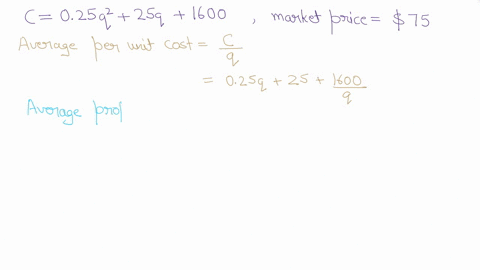 C = 0.25q² + 25q + 1600 , market price = $75
Average per unit cost = C/q
= 0.25q + 25 + 1600/q
Average prof